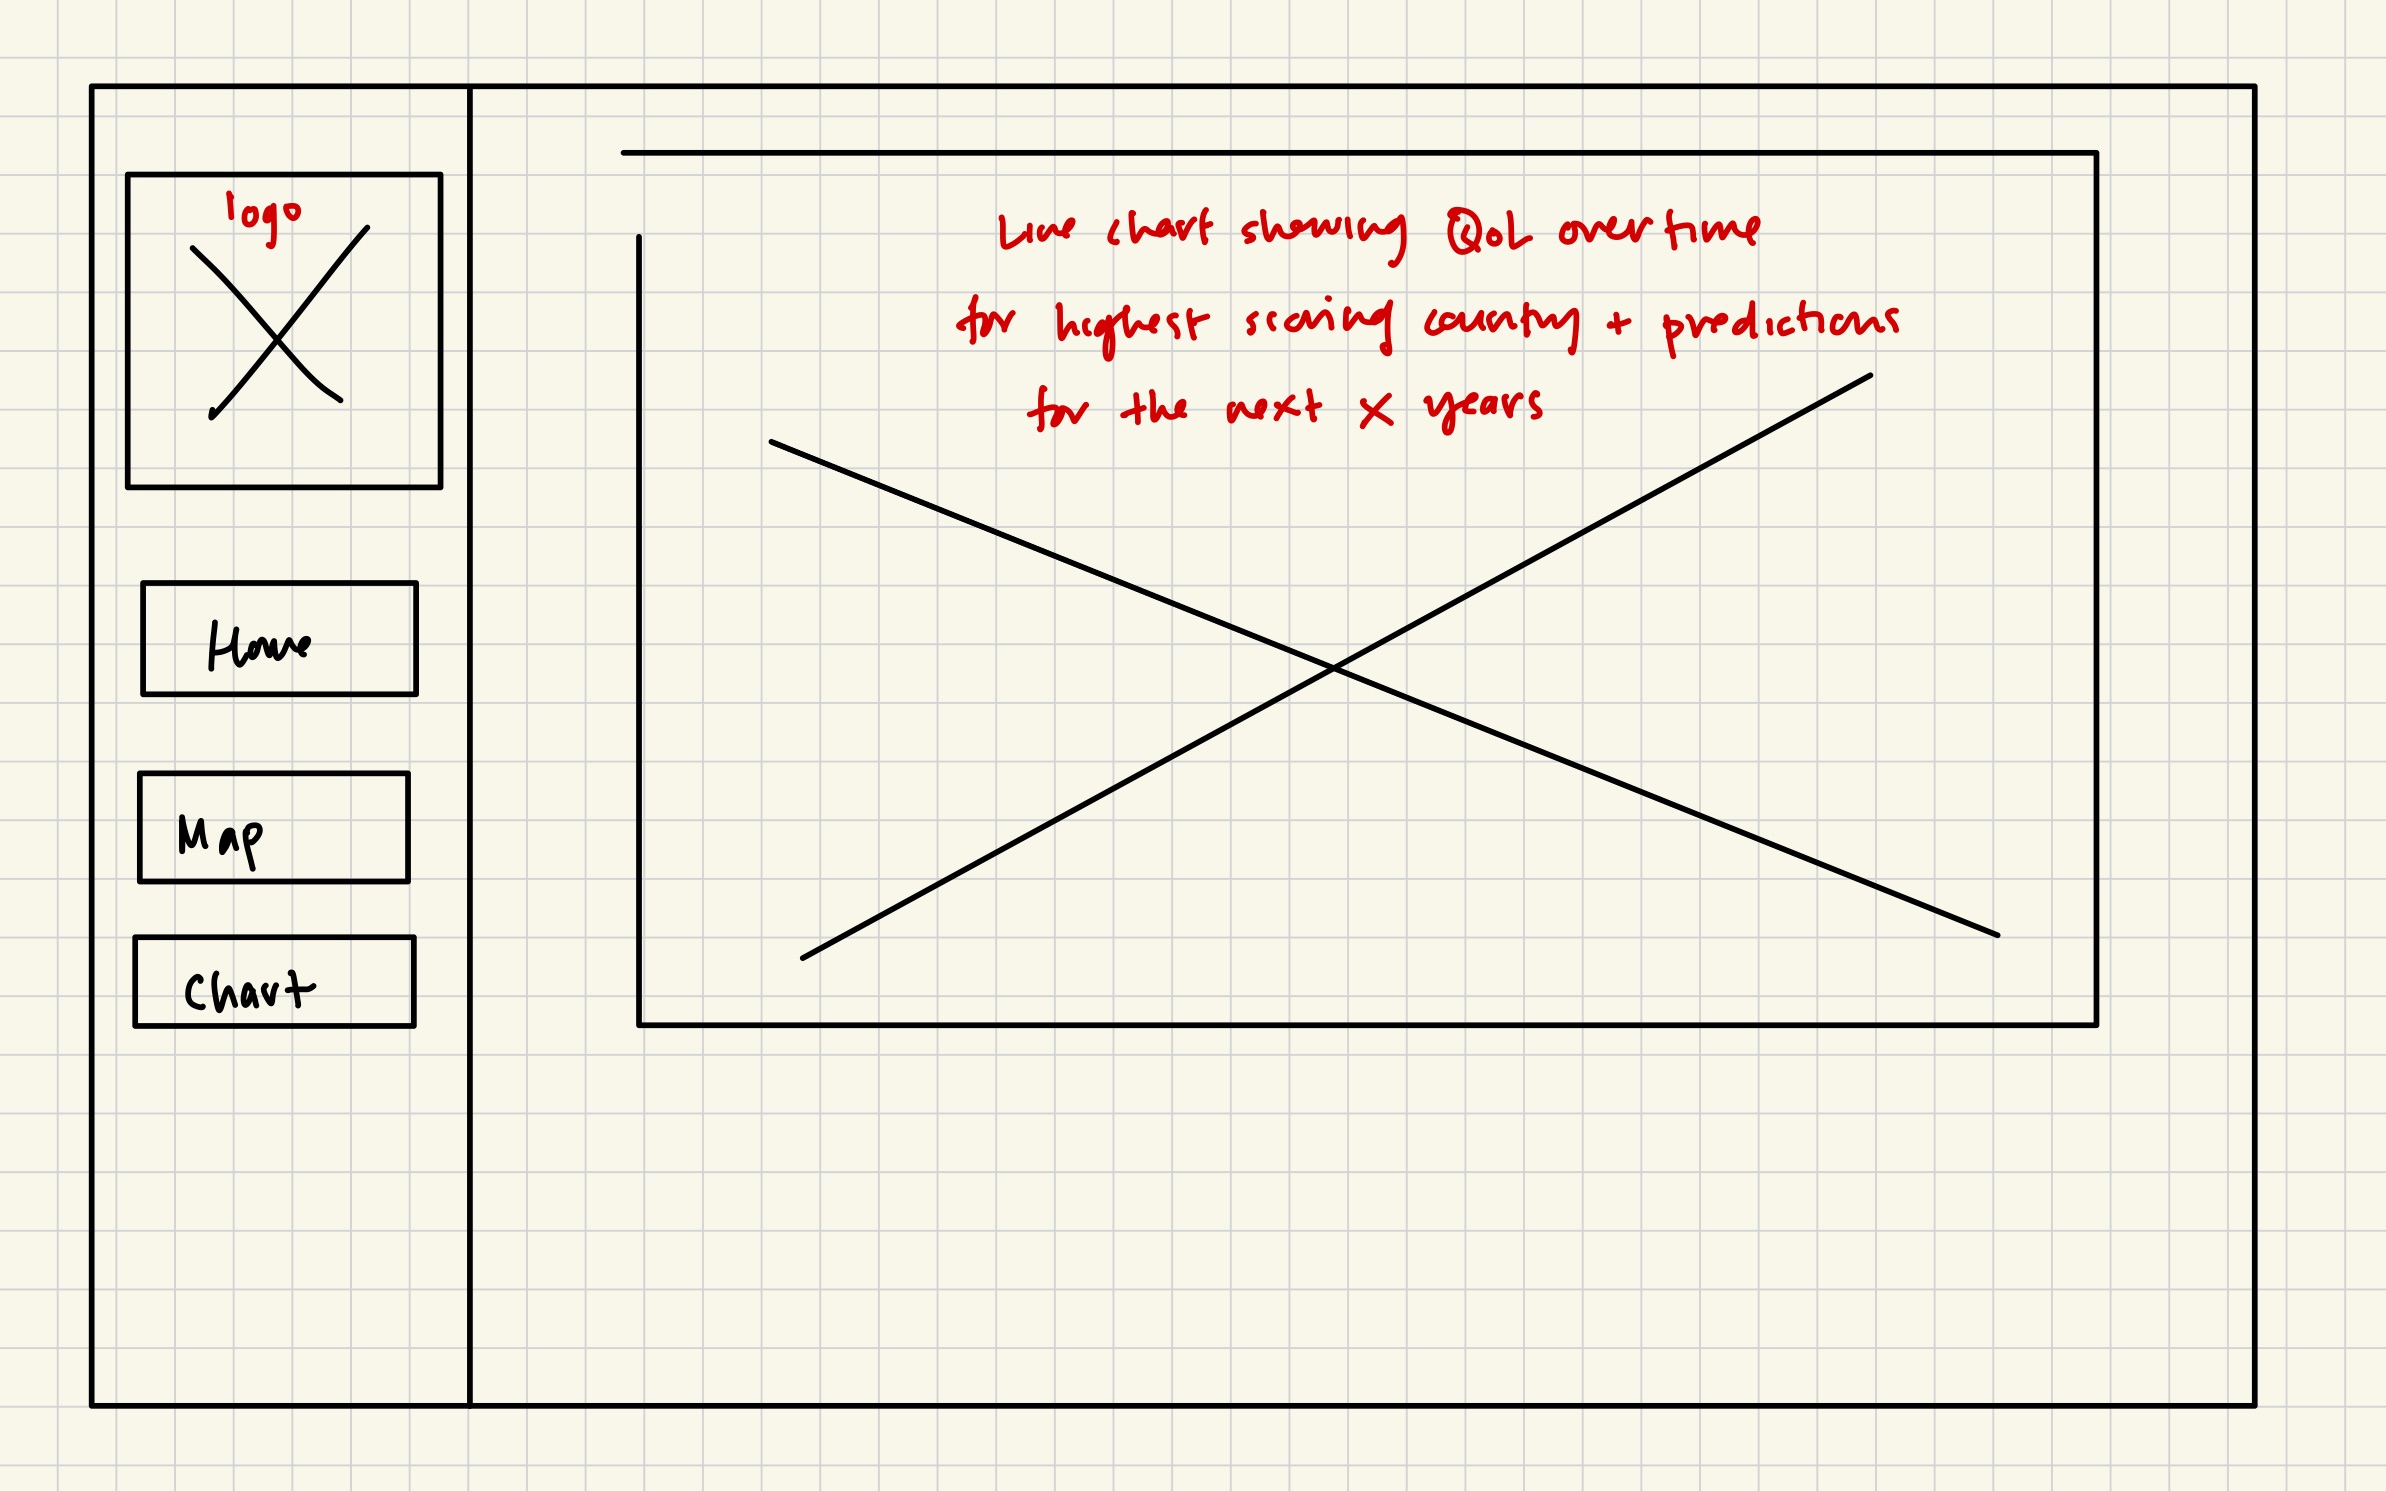 logo
Home
Map
Chart
Line chart showing QoL over time
for highest scoring country + predictions
for the next x years